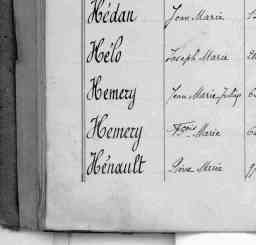 Hédan Jean Marie
Hélo Joseph Marie
Hemery Jean Marie
Hemery Fçois Marie
Hénault Marie